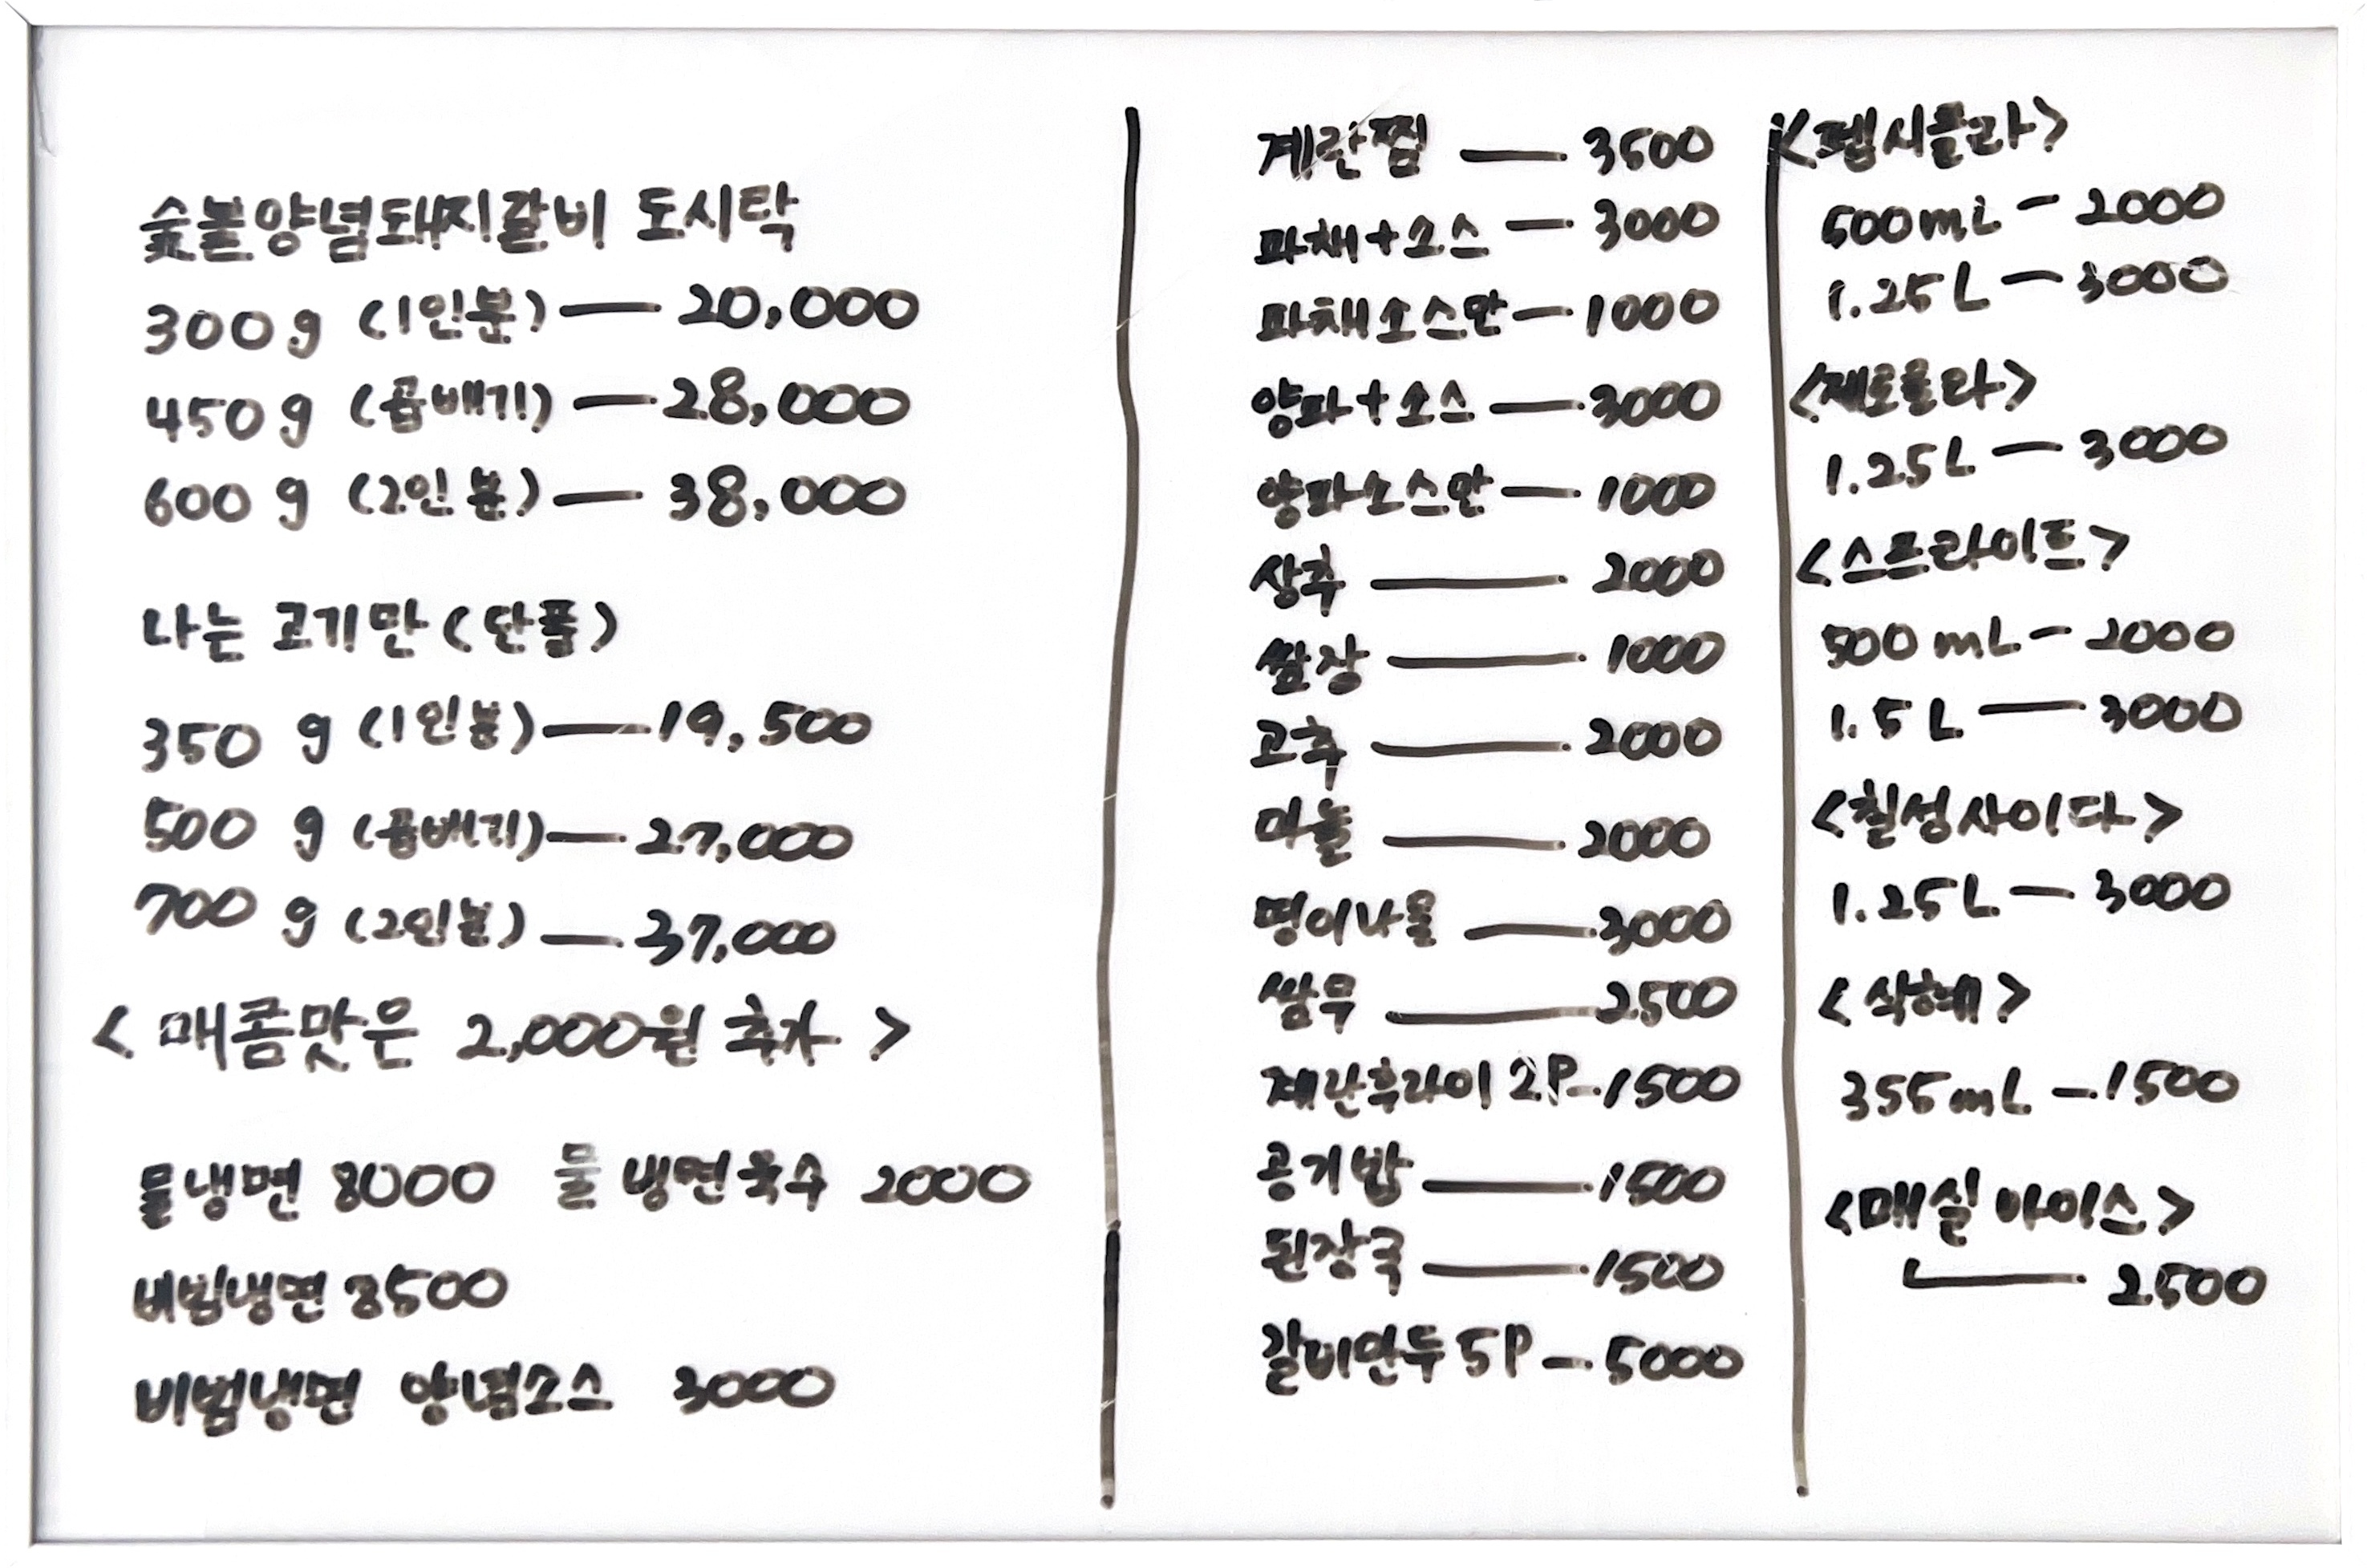 숯불양념돼지갈비 도시락
300g (1인분) — 20,000
450g (곱배기) — 28,000
600g (2인분) — 38,000
나는 고기만 (단품)
350 g (1인분) — 19,500
500 g (곱배기) — 27,000
700 g (2인분) — 37,000
< 매콤맛은 2,000원 추가 >
물냉면 8000 물냉면육수 2000
비빔냉면 8500
비빔냉면 양념소스 3000
계란찜 — 3500
파채+소스 — 3000
파채소스만 — 1000
양파+소스 — 3000
양파소스만 — 1000
상추 — 2000
쌈장 — 1000
고추 — 2000
마늘 — 2000
명이나물 — 3000
쌈무 — 2500
계란후라이 2P — 1500
공기밥 — 1500
된장국 — 1500
갈비만두 5P — 5000
<펩시콜라>
500mL — 2000
1.25L — 3000
<제로콜라>
1.25L — 3000
<스프라이트>
500mL — 2000
1.5L — 3000
<칠성사이다>
1.25L — 3000
<식혜>
355mL — 1500
<매실아이스>
— 2500